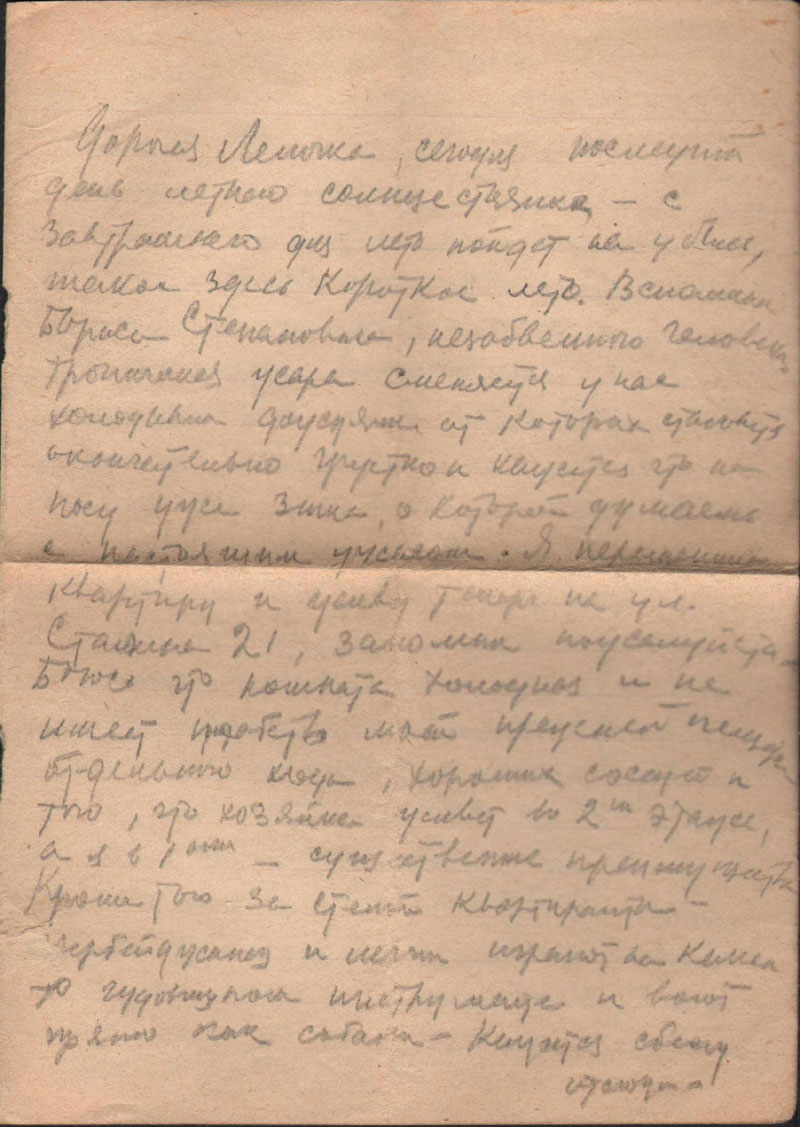 Дорогая Леночка, сегодня последний
день летнего солнцестояния – с
завтрашнего дня лето пойдет на убыль,
такое здесь короткое лето. Вспоминаю
Бориса Степановича, незабвенного человека.
Тропическая жара сменяется у нас
холодными дождями от которых становится
окончательно грустно и кажется что на
носу уже зима, о которой думаешь
с настоящим ужасом. Я переменил
квартиру и живу теперь на ул.
Сталина 21, запомни пожалуйста.
Боюсь что комната холодная и не
имеет удобств моей прежней
отдельного хода, хороших соседей и
того, что хозяйка живет во 2ом этаже,
а я в 1ом – существенные преимущества
Кроме того за стеной квартиранты –
и играют на каком
то чудовищном инструменте и воют
прямо как собаки – Кажется сбегу
отсюда –